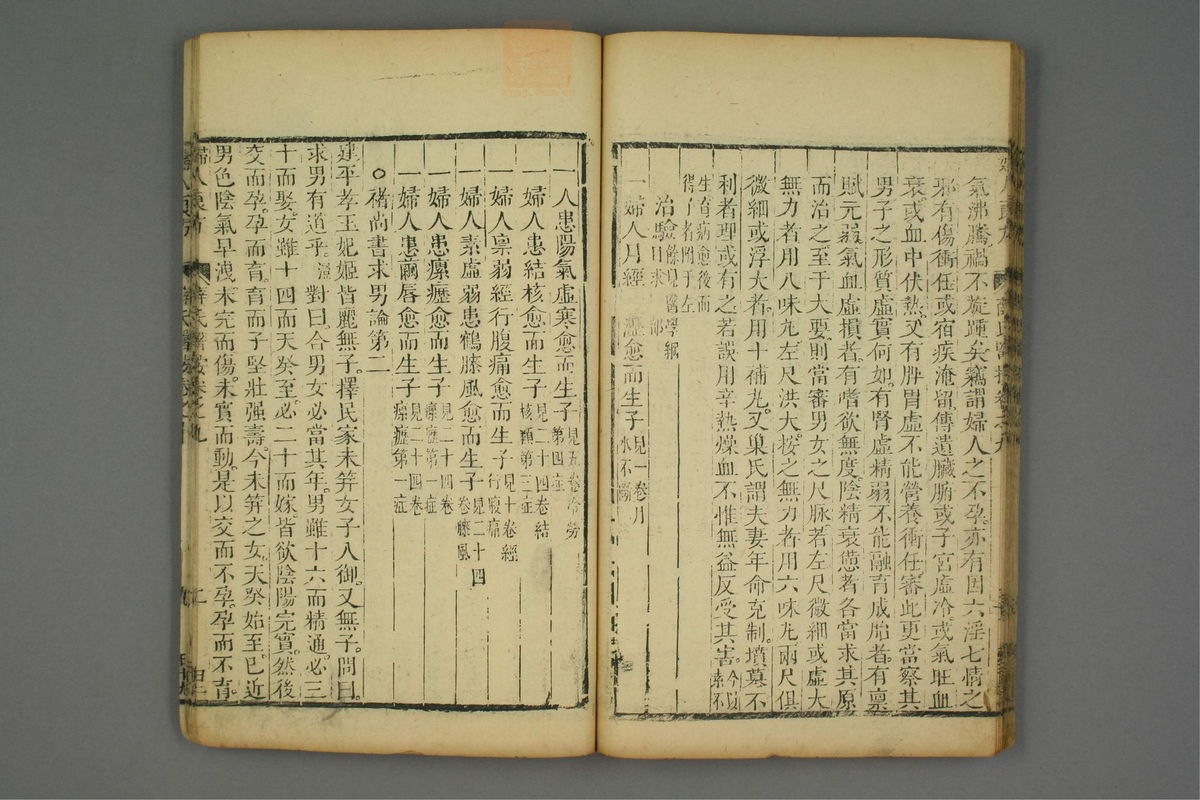 氣沸騰禍不旋踵矣竊謂婦人之不孕亦有因六淫七情之
邪有傷衝任或宿疾淹留傳遺臟腑或子宮虛冷或氣旺血
衰或血中伏熱又有脾胃虛不能營養衝任審此更當察其
男子之形質虛實何如有腎虛精弱不能融育成胎者有稟
賦元弱氣血虛損者有嗜欲無度陰精衰憊者各當求其原
而治之至于大要則當審男女之尺脉若左尺微細或虛大
無力者用八味丸左尺洪大按之無力者用六味丸兩尺俱
微細或浮大者用十補丸又巢氏謂夫妻年命克制墳墓不
利者理或有之若誤用辛熱燥血不惟無益反受其害
生育病愈後而
得子者開于左
治驗
一婦人月經 愈而生子 見一卷月
水不
一 人患陽氣虛寒愈而生子 見五卷冷勞
第四症
一婦人患結核愈而生子 見二十四卷結
核類第三症
一婦人稟弱經行腹痛愈而生子 見十卷經
行腹痛
一婦人素虛弱患鶴膝風愈而生子 見二十四
卷膝風
一婦人患瘰癧愈而生子 見二十四卷
瘰癧第一症
一婦人患繭唇愈而生子 見二十四卷
瘰癧第一症
○褚尚書求男論第二
建平孝王妃姬皆麗無子擇民家未笄女子八御又無子問曰
求男有道乎 對曰合男女必當其年男雖十六而精通必三
十而娶女雖十四而天癸至必二十而嫁皆欲陰陽完實然後
交而孕孕而育育而子堅壯强壽今未笄之女天癸始至已近
男色陰氣早洩未完而傷未實而動是以交而不孕孕而不育